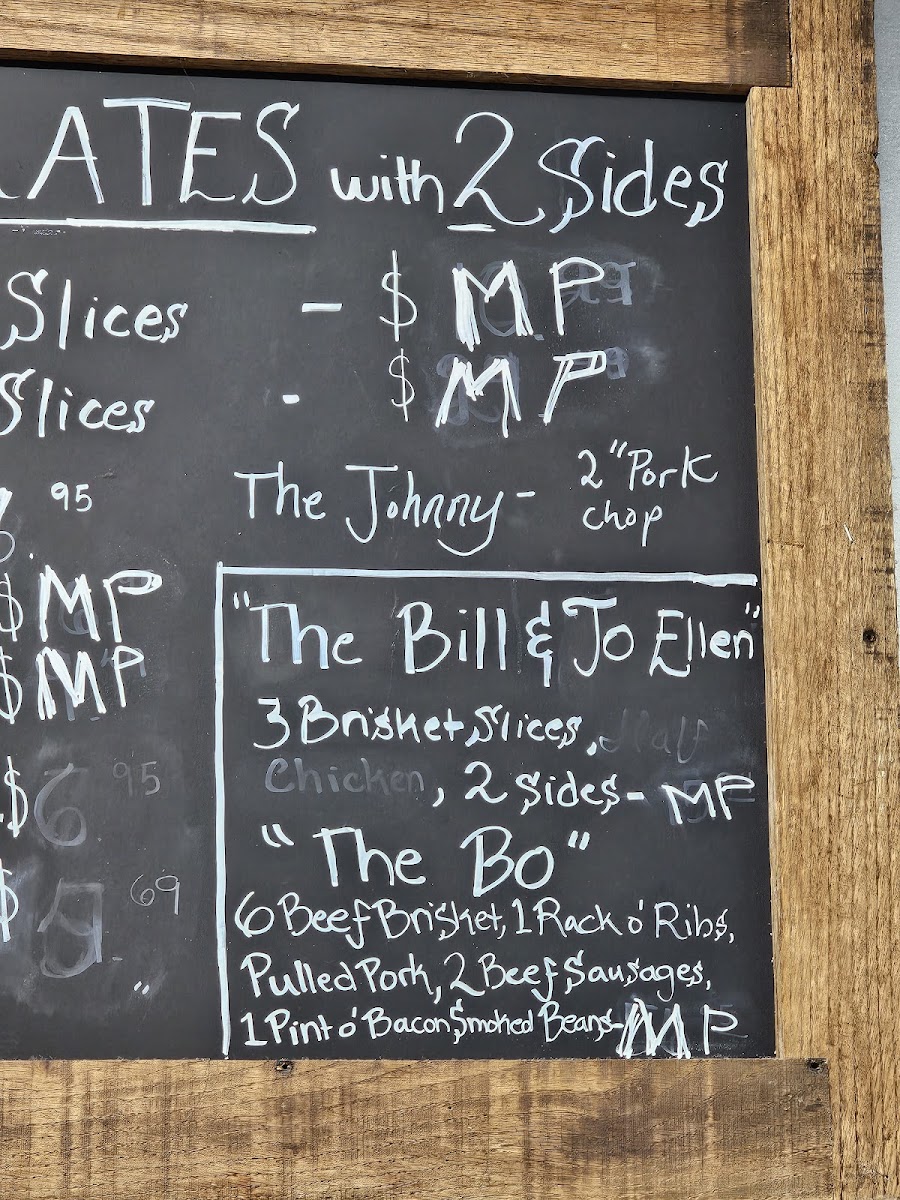 RATES with 2 Sides
Slices - $ MP
Slices - $ MP
95
The Johnny - 2" Pork
chop
$ MP
$ MP
"The Bill & Jo Ellen"
3 Brisket Slices, Half
Chicken, 2 sides - MP
$ 6. 95
"The Bo"
$ 9. 69
6 Beef Brisket, 1 Rack o' Ribs,
Pulled Pork, 2 Beef Sausages,
1 Pint o' Bacon Smoked Beans - MP